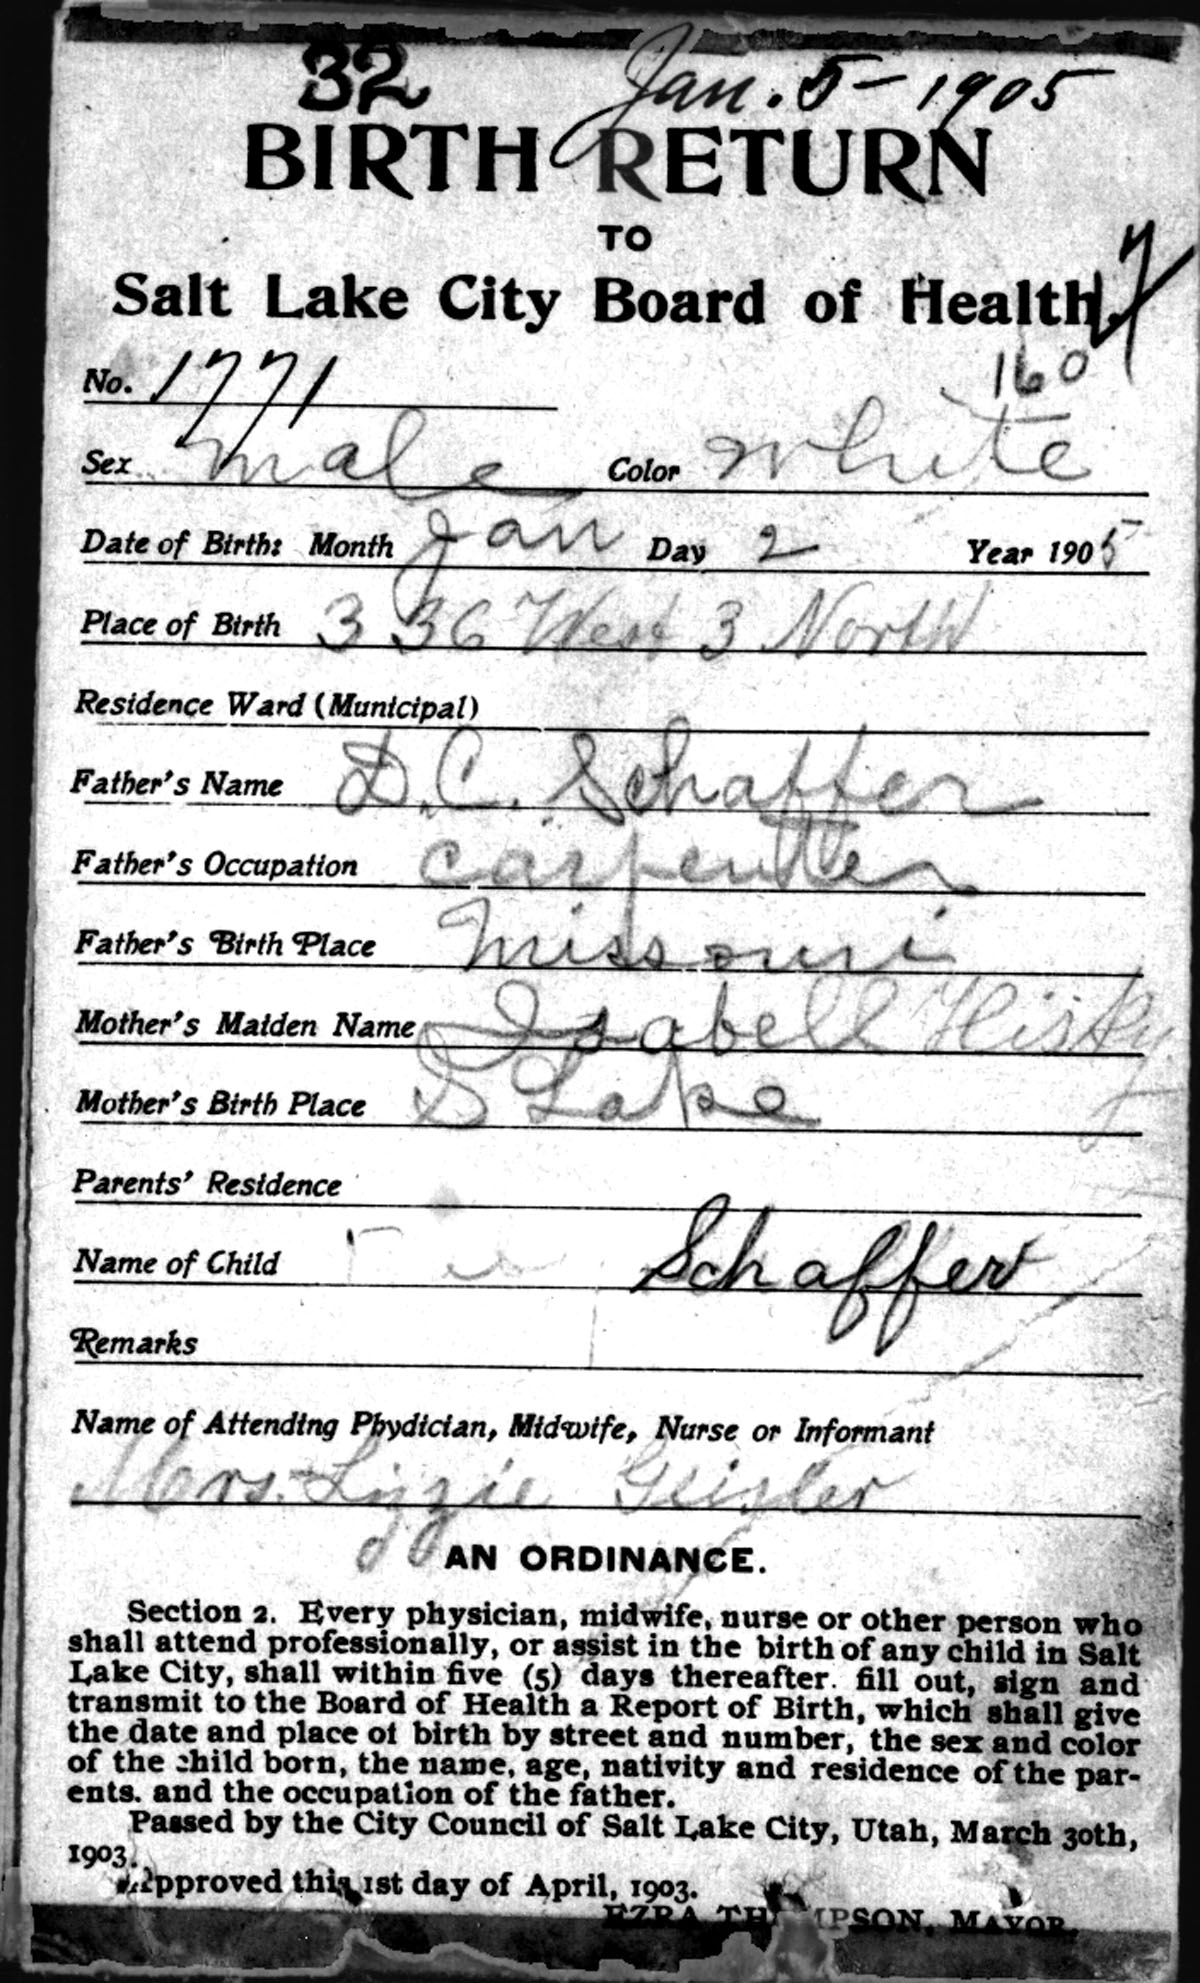 32 Jan. 5 - 1905
BIRTH RETURN
TO
Salt Lake City Board of Health.
No. 1771 160
Sex male Color White
Date of Birth: Month Jan Day 2 Year 1905
Place of Birth 336 West 3 North
Residence Ward (Municipal)
Father's Name D.C. Schaffer
Father's Occupation carpenter
Father's Birth Place Missouri
Mother's Maiden Name Isabell
Mother's Birth Place S Lake
Parents' Residence
Name of Child Schaffer
Remarks
Name of Attending Phydician, Midwife, Nurse or Informant
Mrs. Lizzie Geisler
AN ORDINANCE.
Section 2. Every physician, midwife, nurse or other person who
shall attend professionally, or assist in the birth of any child in Salt
Lake City, shall within five (5) days thereafter. fill out, sign and
transmit to the Board of Health a Report of Birth, which shall give
the date and place of birth by street and number, the sex and color
of the child born, the name, age, nativity and residence of the par-
ents. and the occupation of the father.
Passed by the City Council of Salt Lake City, Utah, March 30th,
1903.
Approved this 1st day of April, 1903.
EZRA THOMPSON, MAYOR.